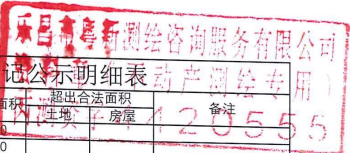 乐昌市粤海测绘咨询服务有限公司
记公示明细表
动产测绘专用
面积 超出合法面积 备注
土地 房屋
420555
0
0